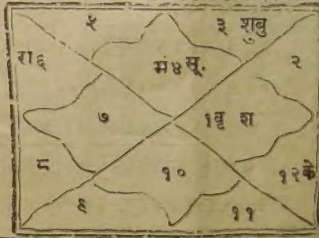 ५ ३ शुबु
रा६ मं४सू. २
७ १बृ श
८ १० १२
९ ११